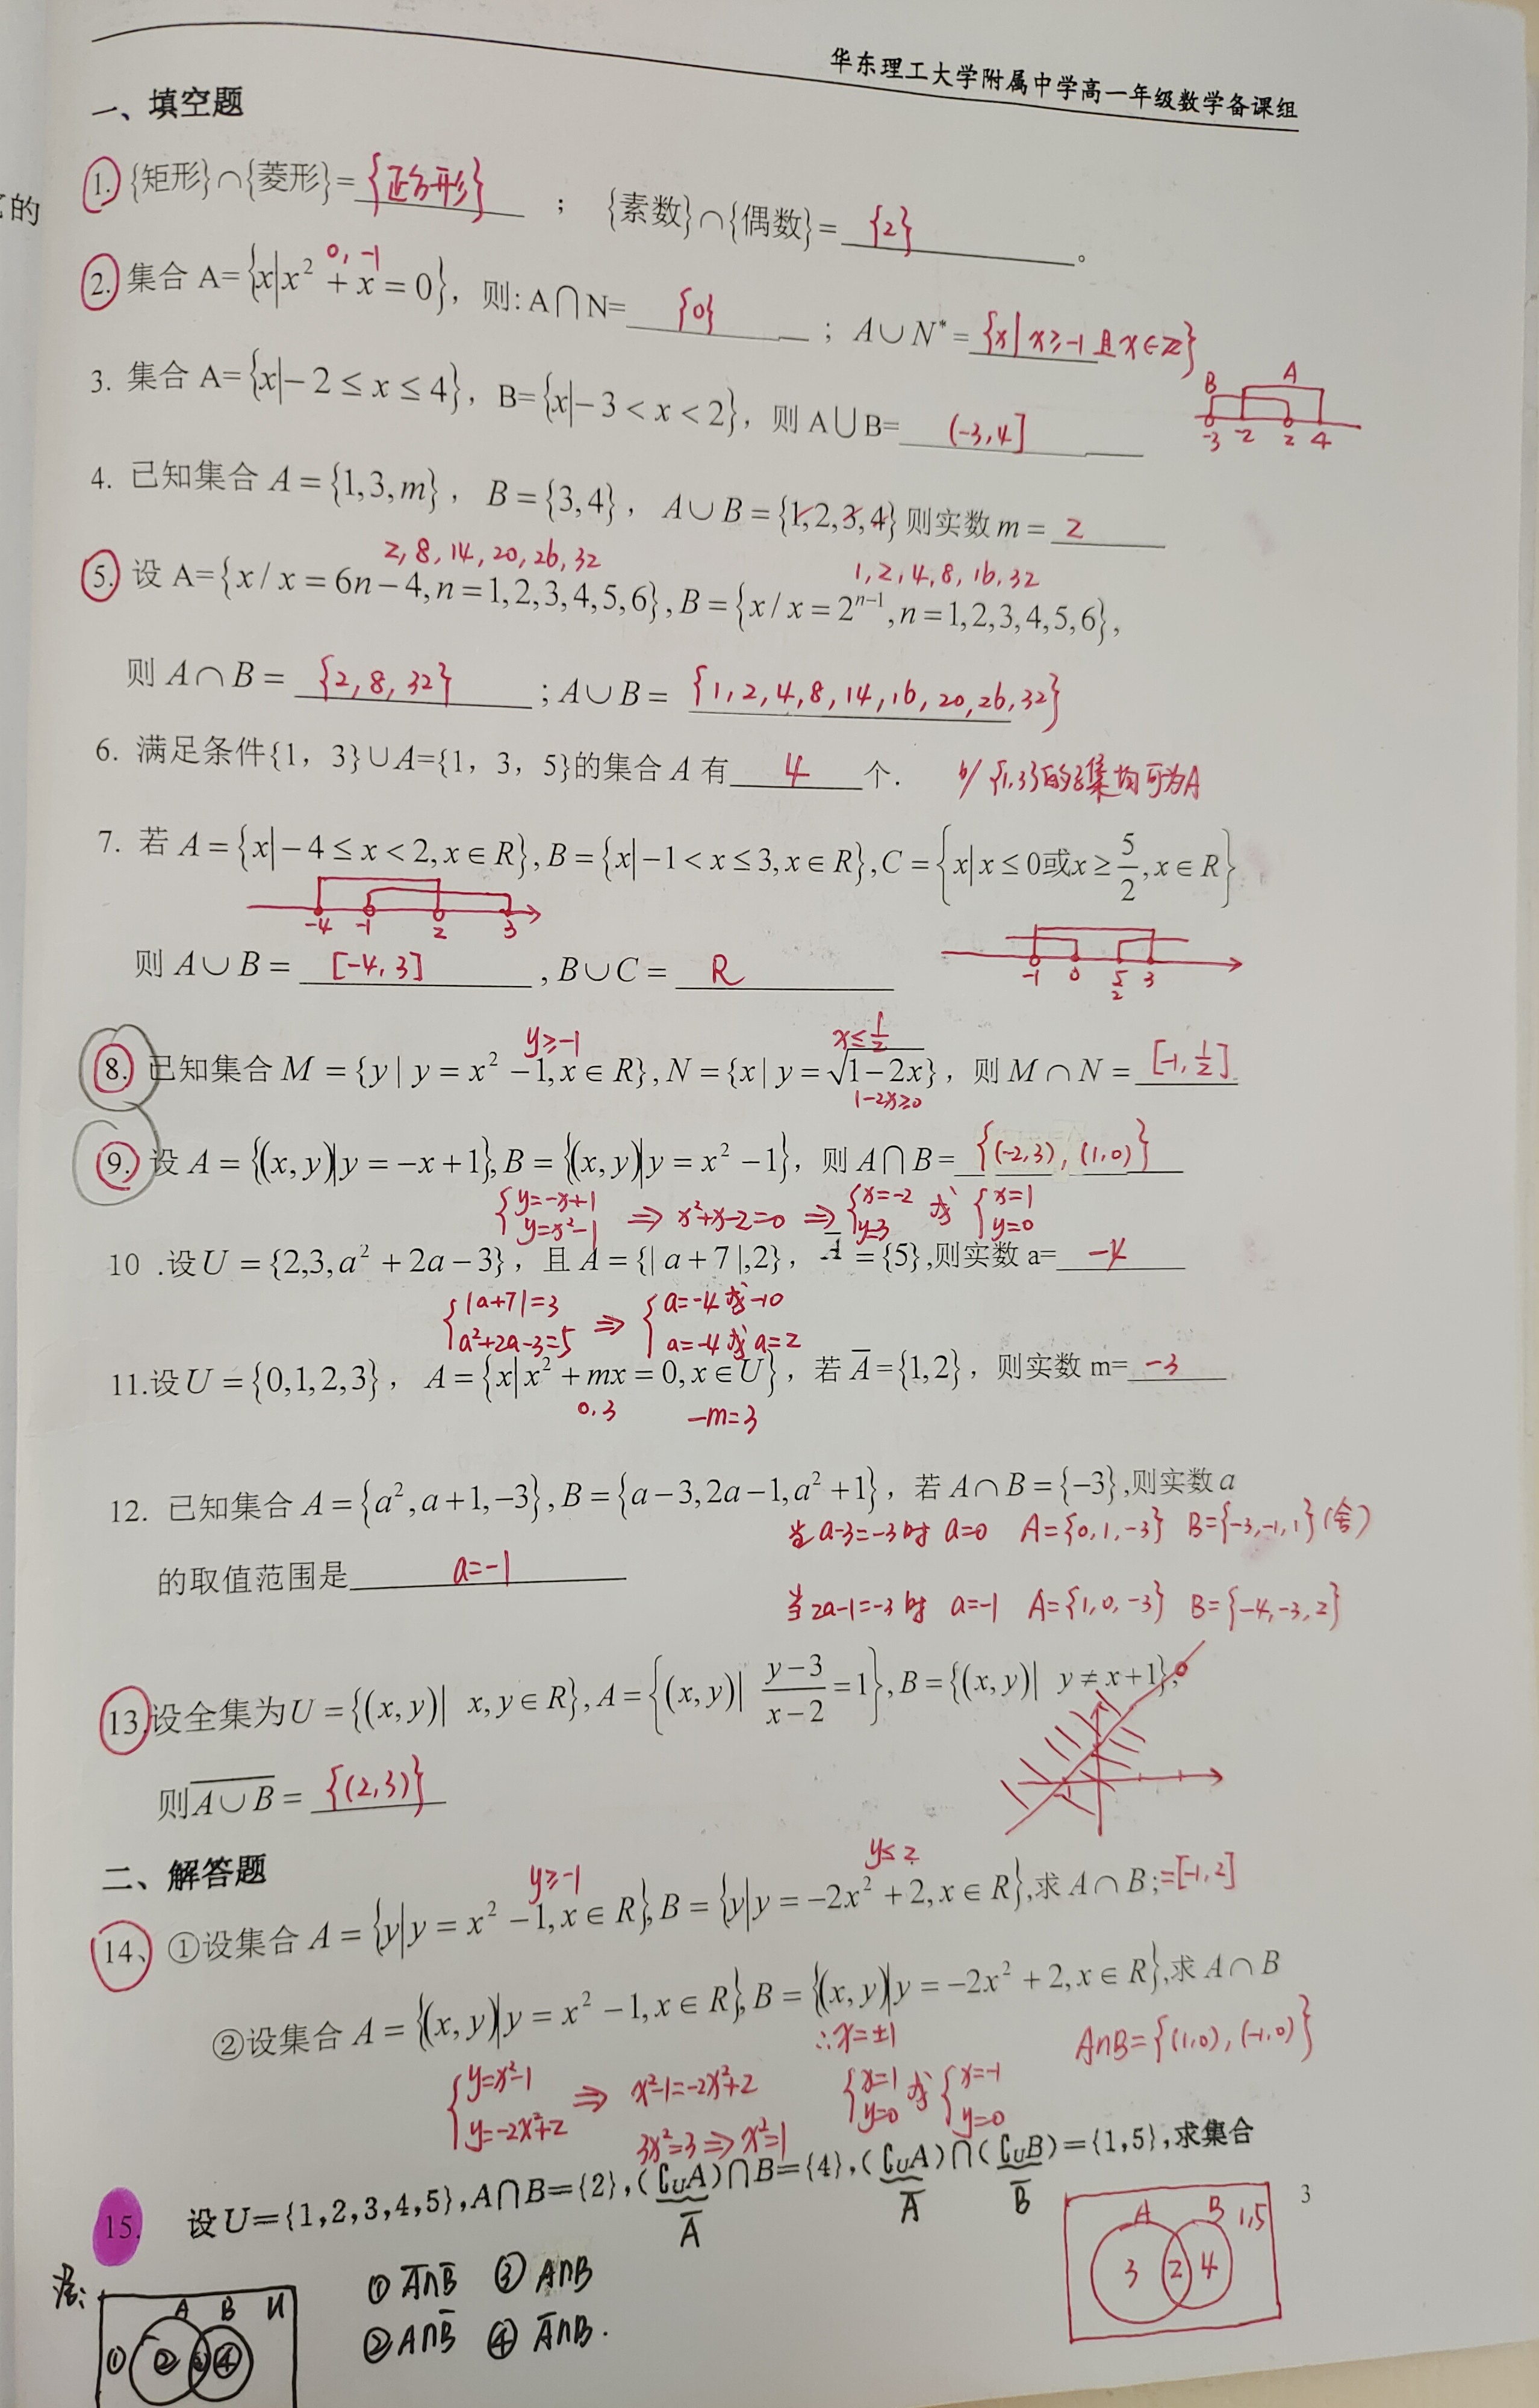 华东理工大学附属中学高一年级数学备课组
一、填空题
的
1. {矩形}∩{菱形}= {正方形} ; {素数}∩{偶数}= {2} 。
0, -1
2. 集合 A={x|x² + x = 0}, 则: A∩N= {0} ; A∪N*= {x | x≥-1 且 x∈Z}
3. 集合 A={x|-2 ≤ x ≤ 4}, B={x|-3 < x < 2}, 则 A∪B= (-3,4]
B A
-3 -2 2 4
4. 已知集合 A = {1,3,m}, B = {3,4}, A∪B = {1,2,3,4} 则实数 m = 2
2, 8, 14, 20, 26, 32 1, 2, 4, 8, 16, 32
5. 设 A={x/x = 6n-4, n = 1,2,3,4,5,6}, B = {x/x = 2ⁿ⁻¹, n = 1,2,3,4,5,6},
则 A∩B = {2, 8, 32} ; A∪B = {1, 2, 4, 8, 14, 16, 20, 26, 32}
6. 满足条件{1, 3}∪A={1, 3, 5}的集合 A 有 4 个. {1,3}的子集均可为A
7. 若 A = {x|-4 ≤ x < 2, x∈R}, B = {x|-1 < x ≤ 3, x∈R}, C = {x|x ≤ 0或x ≥ 5/2, x∈R}
-4 -1 2 3
则 A∪B = [-4, 3] , B∪C = R
-1 0 5/2 3
y≥-1 x≤1/2
8. 已知集合 M = {y | y = x² -1, x∈R}, N = {x | y = √(1-2x)}, 则 M∩N = [-1, 1/2]
1-2x≥0
9. 设 A = {(x,y)|y = -x+1}, B = {(x,y)|y = x² -1}, 则 A∩B= {(-2,3), (1,0)}
{y=-x+1 y=x²-1 ⇒ x²+x-2=0 ⇒ {x=-2 y=3 或 {x=1 y=0
10 .设 U = {2,3,a² + 2a - 3}, 且 A = {| a + 7 |,2}, A̅ = {5},则实数 a= -4
{|a+7|=3 a²+2a-3=5 ⇒ {a=-4或-10 a=-4或a=2
11.设 U = {0,1,2,3}, A = {x|x² + mx = 0, x∈U}, 若 A̅={1,2}, 则实数 m= -3
0,3 -m=3
12. 已知集合 A = {a², a+1, -3}, B = {a-3, 2a-1, a²+1}, 若 A∩B = {-3},则实数 a
当 a-3=-3时 a=0 A={0, 1, -3} B={-3,-1,1}(舍)
的取值范围是 a=-1
当 2a-1=-3时 a=-1 A={1, 0, -3} B={-4,-3,2}
13.设全集为 U = {(x,y)| x,y∈R}, A = {(x,y)| (y-3)/(x-2) = 1}, B = {(x,y)| y ≠ x+1},
则 A∪B̅ = {(2,3)}
二、解答题
y≥-1 y≤2
14、①设集合 A = {y|y = x² -1, x∈R}, B = {y|y = -2x² + 2, x∈R},求 A∩B; =[-1,2]
②设集合 A = {(x,y)|y = x² -1, x∈R}, B = {(x,y)|y = -2x² + 2, x∈R},求 A∩B
{y=x²-1 y=-2x²+2 ⇒ x²-1=-2x²+2
3x²=3 ⇒ x²=1
∴x=±1
{x=1 y=0 或 {x=-1 y=0
A∩B={(1,0), (-1,0)}
15. 设 U={1,2,3,4,5}, A∩B={2}, (∁ᵤA)∩B={4}, (∁ᵤA)∩(∁ᵤB)={1,5},求集合
A̅ A̅ B̅
3
A B 1,5
3 2 4
A B U
① ② ③ ④
① A̅∩B̅ ③ A∩B
② A∩B̅ ④ A̅∩B.